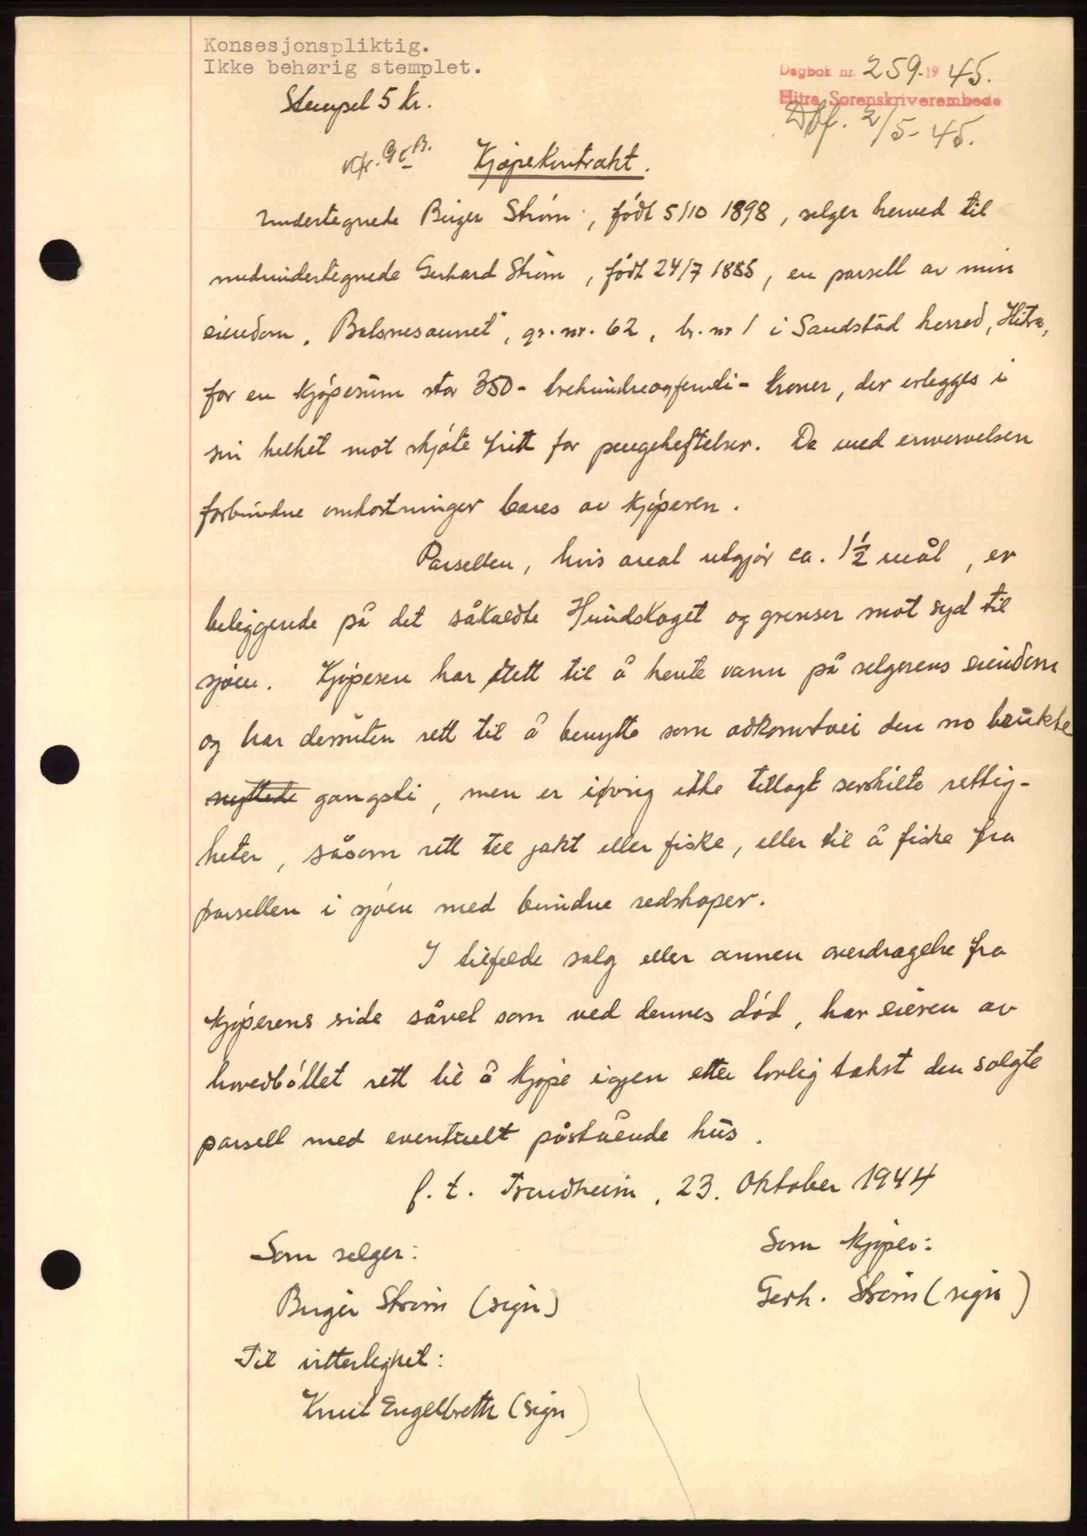 Konsesjonspliktig.
Ikke behørig stemplet.
Stempel 5 kr.
Dagbok nr. 259. 19 45.
Hitra Sorenskriverembede
Dbf. 2/5-45.
Kjøpekontrakt.
Undertegnede Birger Strøm, født 5/10 1898, selger herved til
medundertegnede Gerhard Strøm, født 24/7 1885, en parsell av min
eiendom, "Balsnesaunet", gr. nr. 62, br. nr 1 i Sandstad herred, Hitra,
for en kjøpesum stor 350- trehundreogfemti- kroner, der erlegges i
sin helhet mot skjøte fritt for pengeheftelser. De med ervervelsen
forbundne omkostninger bæres av kjøperen.
Parsellen, hvis areal utgjør ca. 1½ mål, er
beliggende på det såkaldte Hundskaget og grenser mot syd til
sjøen. Kjøperen har rett til å hente vann på selgerens eiendom
og har desuten rett til å benytte som adkomstvei den no brukte
nyttede gangsti, men er iøvrig ikke tillagt særskilte rettig-
heter, såsom rett til jakt eller fiske, eller til å fiske fra
parsellen i sjøen med bundne redskaper.
I tilfelde salg eller annen overdragelse fra
kjøperens side såvel som ved dennes død, har eieren av
hovedbøllet rett til å kjøpe igjen etter lovlig takst den solgte
parsell med eventuelt påstående hus.
f. t. Trondheim, 23. Oktober 1944
Som selger:
Som kjøper:
Birger Strøm (sign)
Gerh. Strøm (sign)
Til vitterlighet:
Knut Engelbreth (sign)